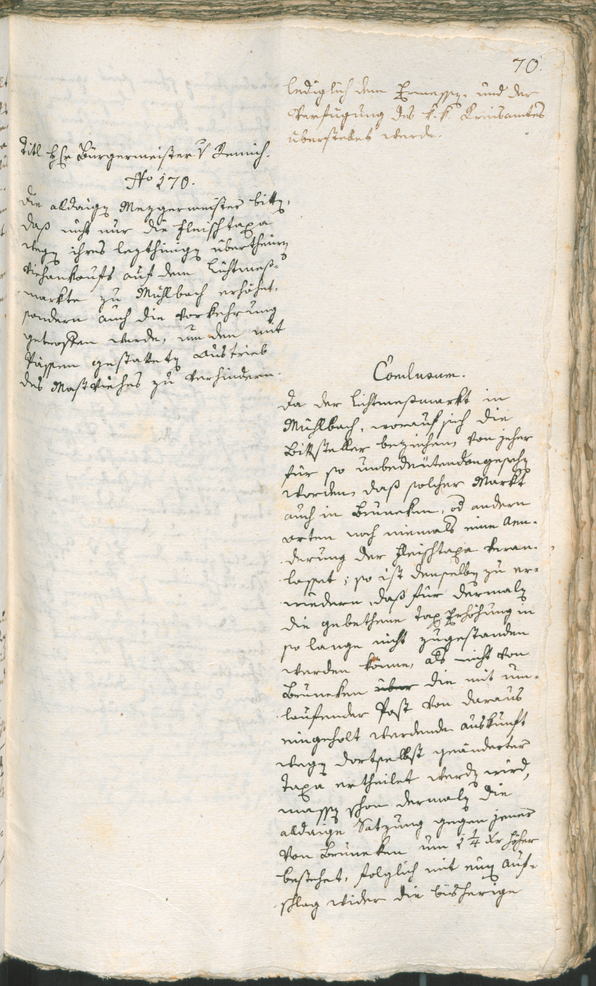 70.
lediglich dem Ermessen und der
Verfügung des k. k. Kreisamtes
überlassen werde.
Titl Hr Bürgermeister v
No 170.
Die aldaigen Mezgermeister bitten,
daß nicht nur die Fleischtaxa
wegen ihres lezthinigen übertheuren
Viehankaufs auf dem Lichtmeß-
markte zu Mühlbach erhöhet,
sondern auch die Vorkehrung
getroffen werde, um den mit
Pässen gestatteten Austrieb
des Mastviehes zu verhindern.
Conlusum.
Da der Lichtmeßmarkt in
Mühlbach, worauf sich die
Bittsteller beziehen, von jeher
für so unbedeutend angesehen
worden, daß solcher Markt
auch in Bruneken, od andern
orten noch niemals eine Aen-
derung der Fleischtaxa veran-
lasset; so ist denselben zu er-
wiedern, daß für dermalen
die gebethene Tax Erhöhung in
so lange nicht zugestanden
werden könne, als nicht von
Bruneken über die mit um-
laufender Post von daraus
eingeholt werdende auskunft
wegen dortselbst geänderter
Taxa ertheilet werden wird,
massen schon dermalen die
aldaige Satzung gegen jener
von Bruneken um 1 1/4 xr höher
bestehet, folglich mit einen Auf-
schlag wider die bisherige